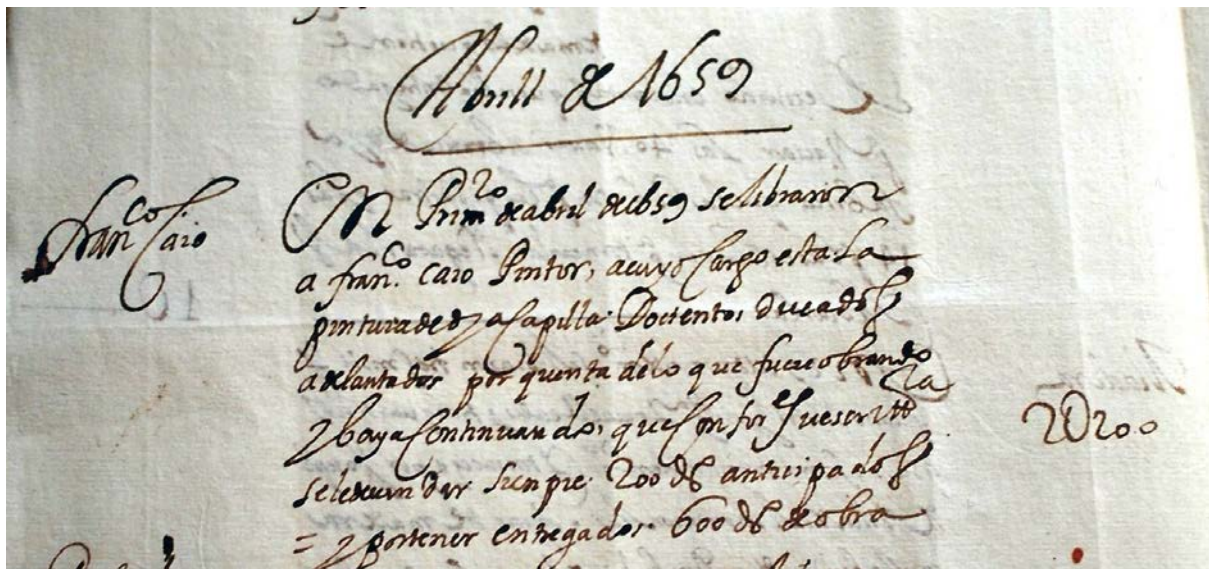 Abrill de 1659
Fran.co Caro
En Prim.ro de abril de 1659 se libraron
a fran.co caro Pintor, a cuyo Cargo esta La
pintura de d. ya Capilla. Docientos ducados
adelantados por quenta de lo que fuere obrando
y baya Continuando, que Conforme Su escritt.ra
se le deven dar siempre 200 ds anticipados
2D200
= y por tener entregados 600 ds de obra